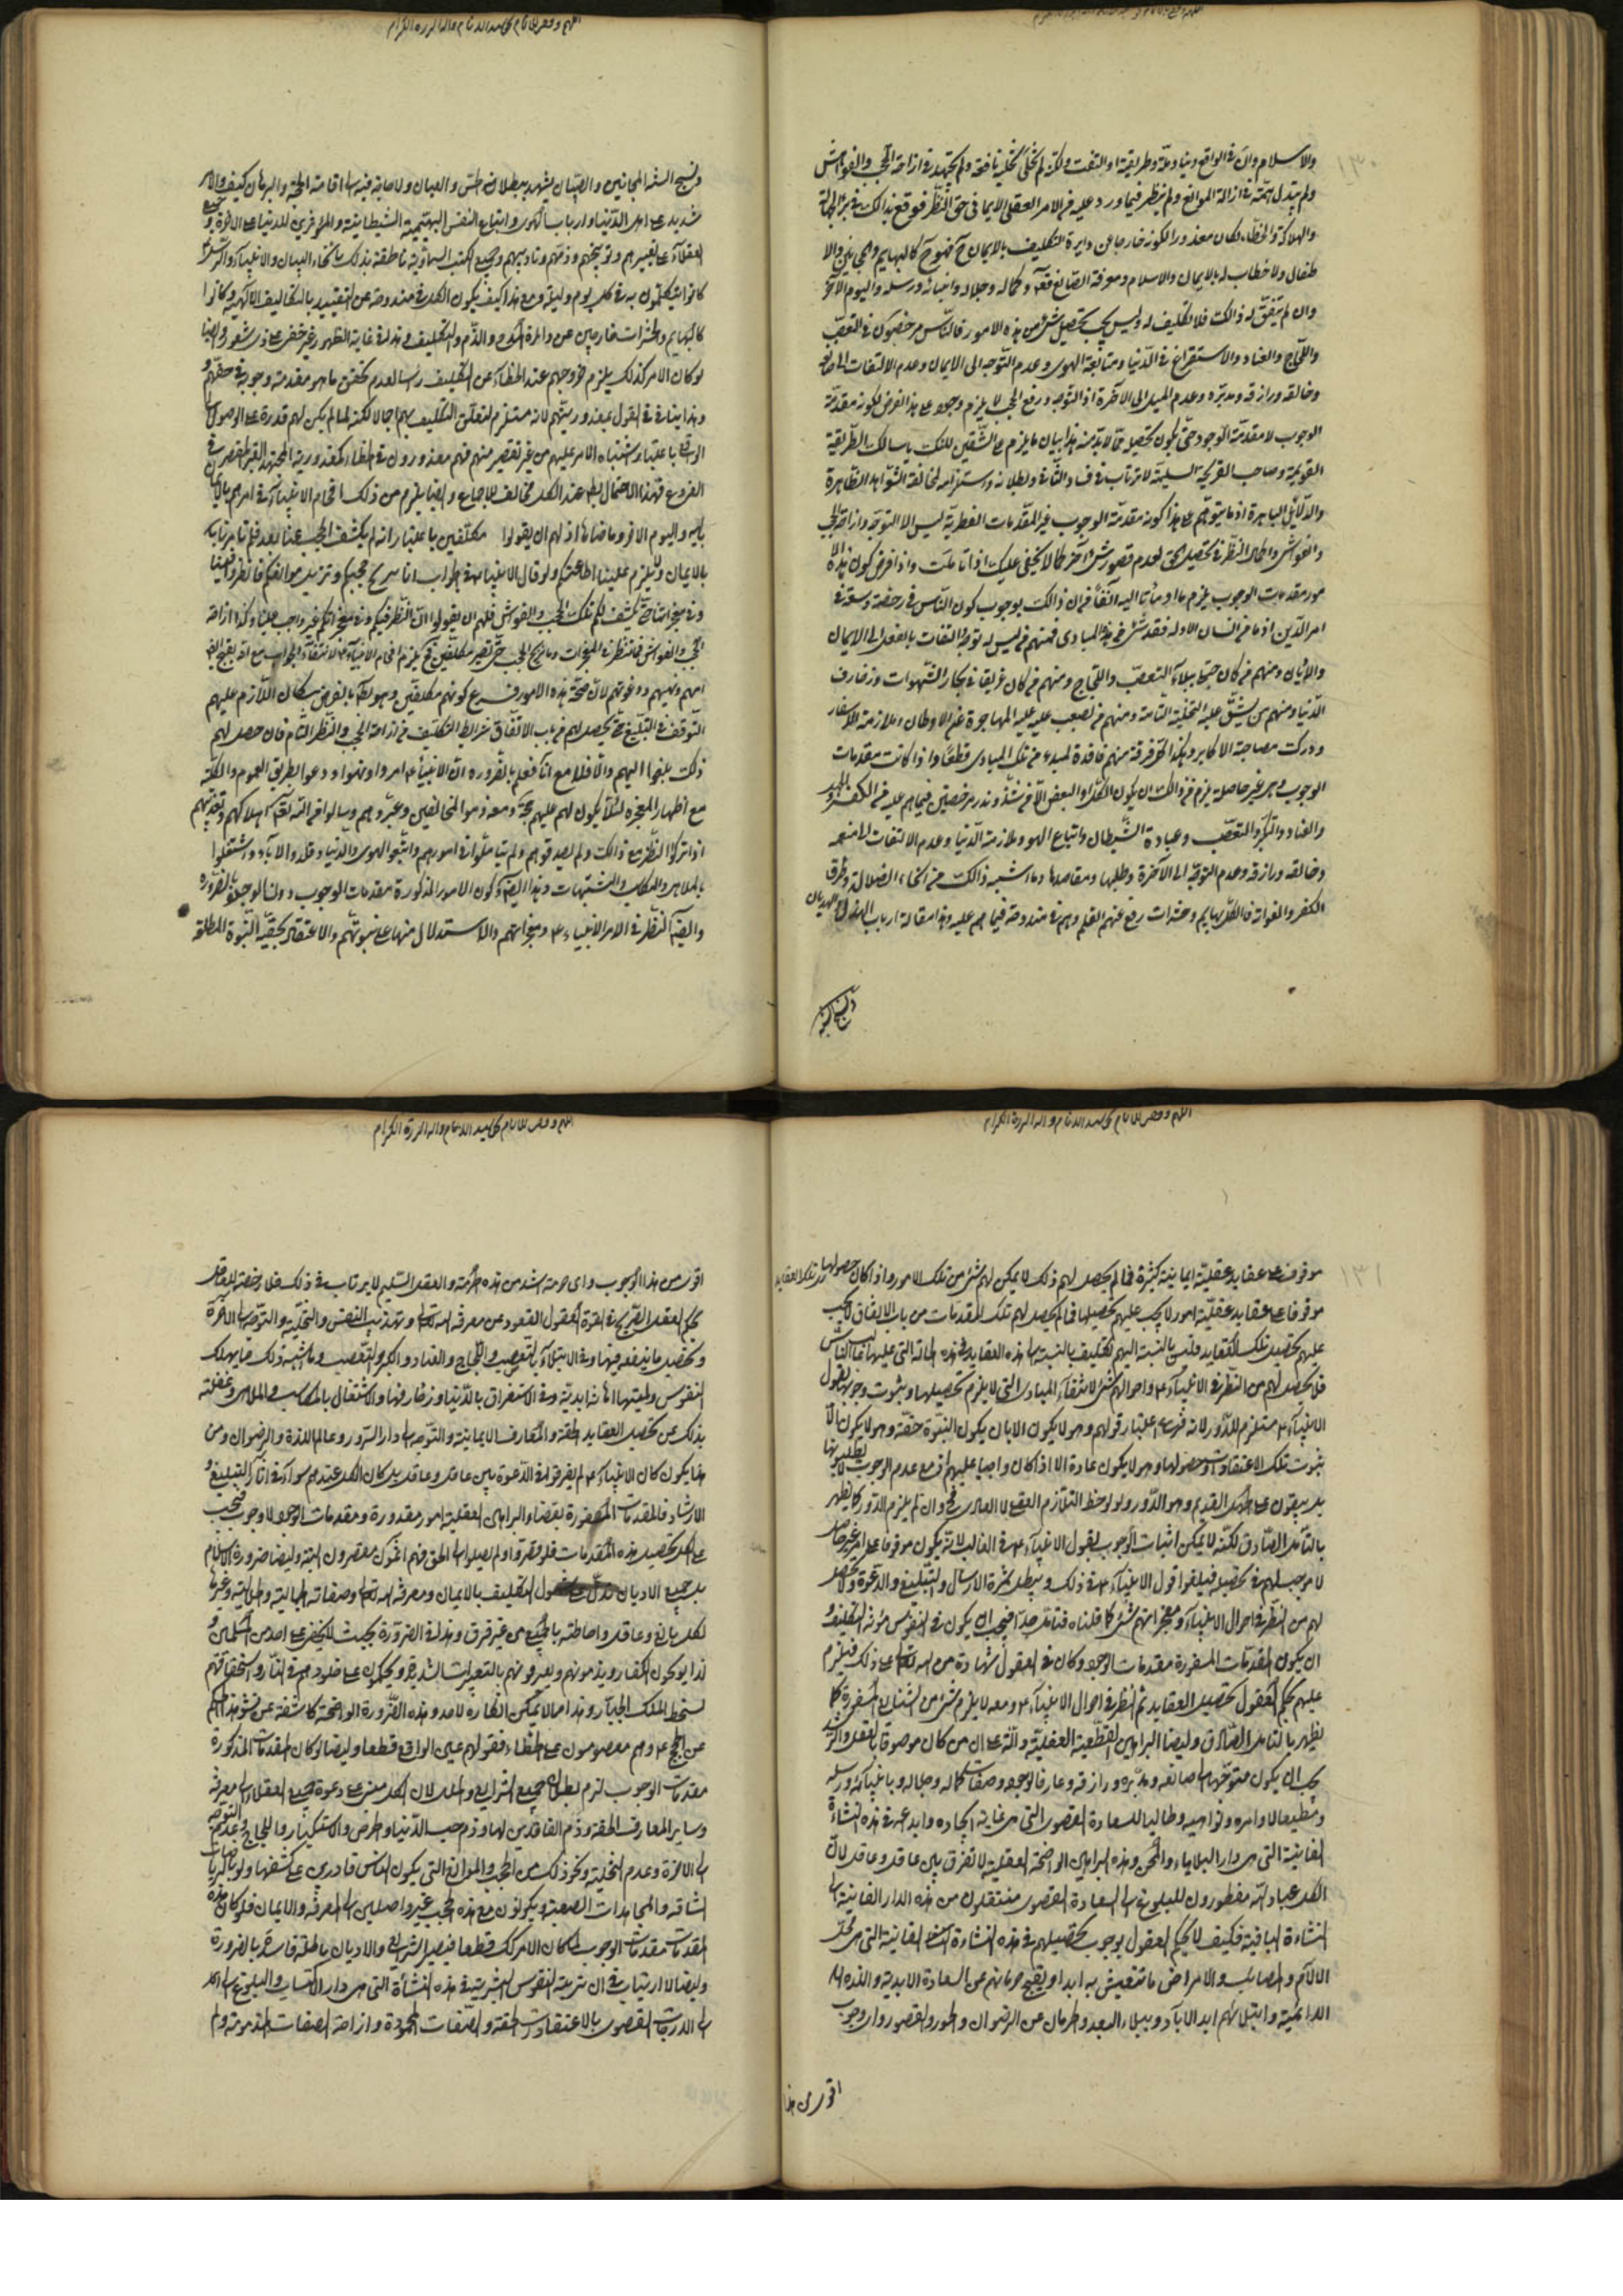 والاسلام وان في الواقع دينا وملة وطريقة او التفت ولكن لم تخل تخلية نافعة ولم يجتهد في ازاحة الحجب والغواش
ولم يبذل همته في ازالة الموانع ولم ينظر فيما ورد عليه في الامر العقلي الايماني حق النظر فوقع بذالك في بئر الجهالة
والهلاكة والخطاء لكان معذورا لكونه خارجا عن دايرة التكليف بالايمان فهو كالبهايم والمجانين والا
طفال ولا خطاب له بالايمان والاسلام ومعرفة الصانع وكماله وجلاله وانبيائه ورسله واليوم الآخر
وان لم يتفق له ذالك فلا تكليف له وليس يجب تحصيل شئ من هذه الامور فالناس مرخصون في التعصب
واللجاج والعناد والاستغراق في الدنيا ومتابعة الهوى وعدم التوجه الى الايمان وعدم الالتفات الى صانعه
وخالقه ورازقه ومدبره وعدم الميل الى الآخرة اذ التوجه ورفع الحجب لا يلزم وجوبه على هذا الفرض لكونه مقدمة
الوجوب لا مقدمة الوجود حتى يكون تحصيله مما لابد منه هذا بيان ما يلزم على الشقين للنكت يا سالك الطريقة
القويمة وصاحب القريحة السليمة لا ترتاب في فساد الثاني وبطلانه واستلزامه لمخالفة الشواهد الظاهرة
والدلائل الباهرة اذ ما يتوهم على هذا كونه مقدمة الوجوب غير المقدمات الفطرية ليس الا التوجه وازاحة الحجب
والغواش واكمال النظر في تحصيل الحق لعدم قصور شئ آخر كما لا يخفى عليك اذا تأملت واذا فرض كون هذه الا
مور مقدمات الوجوب يلزم ما اومأنا اليه آنفا فمن ذالك يوجب كون الناس في رخصة وسعة في
امر الدين اذ ما من انسان الا وله فقد شئ من هذه المبادى فمنهم من ليس له توجه والتفات بالفعل الى الايمان
والاديان ومنهم من كان مبتلا ببلاء التعصب واللجاج ومنهم من كان غريقا في بحار الشهوات وزخارف
الدنيا ومنهم من يشق عليه التخلية التامة ومنهم من يصعب عليه المهاجرة عن الاوطان وملازمة الاسفار
ودرك مصاحبة الاكابر وبهذا كل فرقة منهم فاقدة لمبدء من تلك المبادى قطعا واذا كانت مقدمات
الوجوب وهي غير حاصلة يلزم من ذالك ان يكون الكل او البعض الا من شذ وندر مرخصين فيما هم عليه من الكفر
والعناد والتكبر والتعصب وعبادة الشيطان واتباع الهوى وملازمة الدنيا وعدم الالتفات الى منعمه
وخالقه ورازقه وعدم التوجه الى الآخرة وطلبها ومقاصدها وما اشبه ذالك من انحاء الضلالة وطرق
الكفر والغواية فالكل بهايم وحشرات رفع عنهم القلم وهم في مندوحة فيما هم عليه وهذا مقالة ارباب الهذيان
ونسج السنة المجانين والصبيان يشهد ببطلانه الحس والعيان ولا حاجة فيه الى اقامة الحجة والبرهان كيف والامر
شديد على اهل الدنيا وارباب الهوى واتباع النفس البهيمية الشيطانية والمؤثرين للدنيا على الآخرة وجميع
العقلاء على تعييرهم وتوبيخهم وذمهم وتأديبهم وجميع الكتب السماوية ناطقة بذلك بانحاء البيان والانبياء والرسل
كانوا يتكلمون به في كل يوم وليلة ومع هذا كيف يكون الكل في مندوحة عن التقييد بالتكاليف الالهية وكانوا
كالبهايم والحشرات خارجين عن دائرة المدح والذم والتكليف وهذا في غاية الظهور غير خفي على ذى شعور وايضا
لو كان الامر كذلك يلزم خروجهم عند الخطاء عن التكليف رأسا لعدم تحقق ما هو مقدمة وجوبه في حقهم
وهذا ينافي القول بمعذوريتهم لانه مستلزم لتعلق التكليف بهم اجمالا لكنه لما لم يكن لهم قدرة على الوصول الى
الواقع باعتبار اشتباه الامر عليهم من غير تقصير منهم فهم معذورون في الخطاء كمعذورية المجتهد الغير المقصر في
الفروع فهذا الاحتمال باطل عند الكل مخالف للاجماع وايضا يلزم من ذلك افحام الانبياء في امرهم بالايمان
بالله واليوم الآخر وما ضاهاها اذ لهم ان يقولوا مكلفين باعتبار انه لم يكشف الحجب عنا بعد فلم تأمرنا به
بالايمان ولا يلزم علينا اطاعتكم ولو قال الانبياء في الجواب انا نبرح حجبكم ونزيل موانعكم فانظروا فينا
وفي معجزاتنا حتى يكشف لكم تلك الحجب والغواش فلهم ان يقولوا الآن النظر فيكم وفي معجزاتكم غير واجب علينا وكذا ازاحة
الحجب والغواش فلا ننظر في المعجزات وما نزيح الحجب حتى نصير مكلفين فح يلزم افحام الانبياء لانتفاء الجواب مع انه يقبح
امرهم ونهيهم ودعوتهم لان صحة هذه الامور فرع كونهم مكلفين وهو باطل بالفرض بل كان اللازم عليهم
التوقف في التبليغ حتى يحصل لهم من باب الاتفاق شرايط التكليف من ازاحة الحجب والنظر التام فان حصل لهم
ذلك بلغوا اليهم والا فلا مع انا نعلم بالضرورة ان الانبياء امروا ونهوا ودعوا بطريق العموم والكلية
مع اظهار المعجزة لئلا يكون لهم عليهم حجة ومعه ذموا المخالفين وعيروهم وسالوا من الله تعالى اهلاكهم وتعذيبهم
اذا تركوا النظر مع ذالك ولم يصدقوهم ولم يتأملوا في امورهم واتبعوا الهوى والدنيا وقلدوا الآباء واشتغلوا
بالملاهي والمكاسب والمشتبهات وهذا ايضا كون الامور المذكورة مقدمات الوجوب دون الوجود بالضرورة
وايضا النظر في امر الانبياء ومعجزاتهم والاستدلال منها على نبوتهم والاعتقاد بحقية النبوة المطلقة
موقوف على عقايد عقلية ايمانية كثيرة فما لم يحصل لهم ذلك لا يمكن لهم شئ من تلك الامور واذا كان حصولها
موقوفا على عقايد عقلية امور لا يجب عليهم تحصيلها فما لم يحصل لهم تلك المقدمات من باب الاتفاق لا يجب
عليهم تحصيل تلك العقايد وليس بالنسبة اليهم تكليف بالنسبة الى هذه العقايد في هذه الحالة التي عليها الناس
فلا يحصل لهم من النظر في الانبياء واحوالهم شئ لانتفاء المبادى التي لا يلزم تحصيلها وثبوت وجوبها بقول
الانبياء مستلزم للدور لانه فرع اعتبار قولهم وهو لا يكون الا بان يكون النبوة حقة وهو لا يكون الا
بثبوت تلك الاعتقادات وحصولها وهو لا يكون عادة الا اذا كان واجبا عليهم اذ مع عدم الوجوب لا يطلبونها
بل يبقون على القديم وهو الدور ولو لوحظ التلازم العقلي لا العادي فح وان لم يلزم الدور كما يظهر
بالتأمل الصادق لكنه لا يمكن اثبات الوجوب بقول الانبياء في الغالب لانه يكون موقوفا على امر غير حاصل
لا موجب لهم في تحصيله فيلغوا قول الانبياء في ذلك ويبطل ثمرة الارسال والتبليغ والدعوة ولا يحصل
لهم من النظر في احوال الانبياء ومعجزاتهم شئ كما قلناه فتأمل جدا فيجب ان يكون في النفوس مؤنة التكليف و
ان يكون المقدمات المسفورة مقدمات الوجود وكان في العقول شهادة من الله تعالى على ذلك فيلزم
عليهم بحكم العقول تحصيل العقايد ثم النظر في احوال الانبياء ومعه لا يلزم شئ من الشنايع المسفورة كما
يظهر بالتأمل الصادق وايضا البراهين القطعية العقلية دالة على ان من كان موصوفا بالعقل والرشد
يجب ان يكون متوجها الى صانعه ومدبره ورازقه وعارفا بوجوده وصفات كماله وجلاله وبانبيائه ورسله
ومطيعا لاوامره ونواهيه وطالبا للسعادة القصوى التي هي غاية ايجاده وابداعه في هذه النشأة
الفانية التي هي دار البلايا والمحن وهذه البراهين الواضحة العقلية لا تفرق بين عاقل وعاقل لان
الكل عباد الله مفطورون للبلوغ الى السعادة القصوى منتقلون من هذه الدار الفانية الى
النشاءة الباقية فكيف لا يحكم العقول بوجوب تحصيلهم في هذه النشاءة الفانية التي هي محل
الآلام والمصائب والامراض ما تتعيش به ابدا ويقبح حرمانهم عن السعادة الابدية واللذة
الدائمية وابتلائهم ابد الآباد ببلاء البعد والحرمان عن الرضوان والحور والقصور واى وجوب
اقوى من هذا
اقوى من هذا الوجوب واى حرمة اشد من هذه الحرمة والعقل السليم لا يرتاب في ذلك فلا رخصة للعاقل
بحكم العقل الصريح في القعود عن معرفة الله تعالى وتهذيب النفس والتخلية والتوجه الى الآخرة
وتحصيل ما ينفعه فيها وفي الابتلاء بالتعصب واللجاج والعناد والكبر والتعصب وما اشبه ذلك مما يهلك
النفوس ويميتها اماتة ابدية وفي الاستغراق بالدنيا وزخارفها والاشتغال بالمكاسب والملاهي وغفلته
بذلك عن تحصيل العقايد الحقة والمعارف الايمانية والتوجه الى دار السرور وعالم اللذة والرضوان ومن
هنا يكون كان الانبياء لم يفرقوا في الدعوة بين عاقل وعاقل بل كان الكل عندهم سواء في التبليغ و
الارشاد فالمقدمات المسفورة بقضاء البراهين العقلية امور مقدورة ومقدمات الوجود لا وجوب فيجب
على الكل تحصيل هذه المقدمات فلو قصروا ولم يصلوا الى الحق فهم آثمون مقصرون البتة وايضا ضرورة الاسلام
بل جميع الاديان تدل على شمول التكليف بالايمان ومعرفة الله تعالى وصفاته الجمالية والجلالية وغيرها
لكل بالغ وعاقل واحاطته بالجميع من غير فرق وهذا في الضرورة بحيث لا يخفى على احد من المسلمين و
لذا يوبخون الكفار ويذمونهم ويعيرونهم بالتعبيرات الشديدة ويحكمون على خلودهم في النار واستحقاقهم
لسخط الملك الجبار وهذا مما لا يمكن انكاره لاحد وهذه الضرورة الواضحة كاشفة عن
عن الحجج وهم معصومون عن الخطاء فقولهم عين الواقع قطعا وايضا لو كان المقدمات المذكورة
مقدمات الوجوب لزم بطلان جميع الشرايع والملل لان الكل مبني على دعوة جميع العقلاء الى معرفة الله
وساير المعارف الحقة وذم الفاقدين لها وذم حب الدنيا والحرص والاستكبار واللجاج وعدم التوجه
الى الآخرة وعدم التخلية ونحو ذلك من الحجب والموانع التي يكون الناس قادرين على كشفها ولو بالرياضات
الشاقة والمجاهدات الصعبة ويكونون مع هذه الحجب غير واصلين الى المعرفة والايمان فلو كان هذه
المقدمات مقدمات الوجوب لما كان الامر كذلك قطعا فيصير الشرايع والاديان باطلة فاسدة بالضرورة
وايضا لا ارتياب في ان تربية النفوس البشرية في هذه النشأة التي هي دار الاكتساب والبلوغ
الى الدرجات القصوى بالاعتقادات الحقة والصفات المحمودة وازاحة الصفات المذمومة